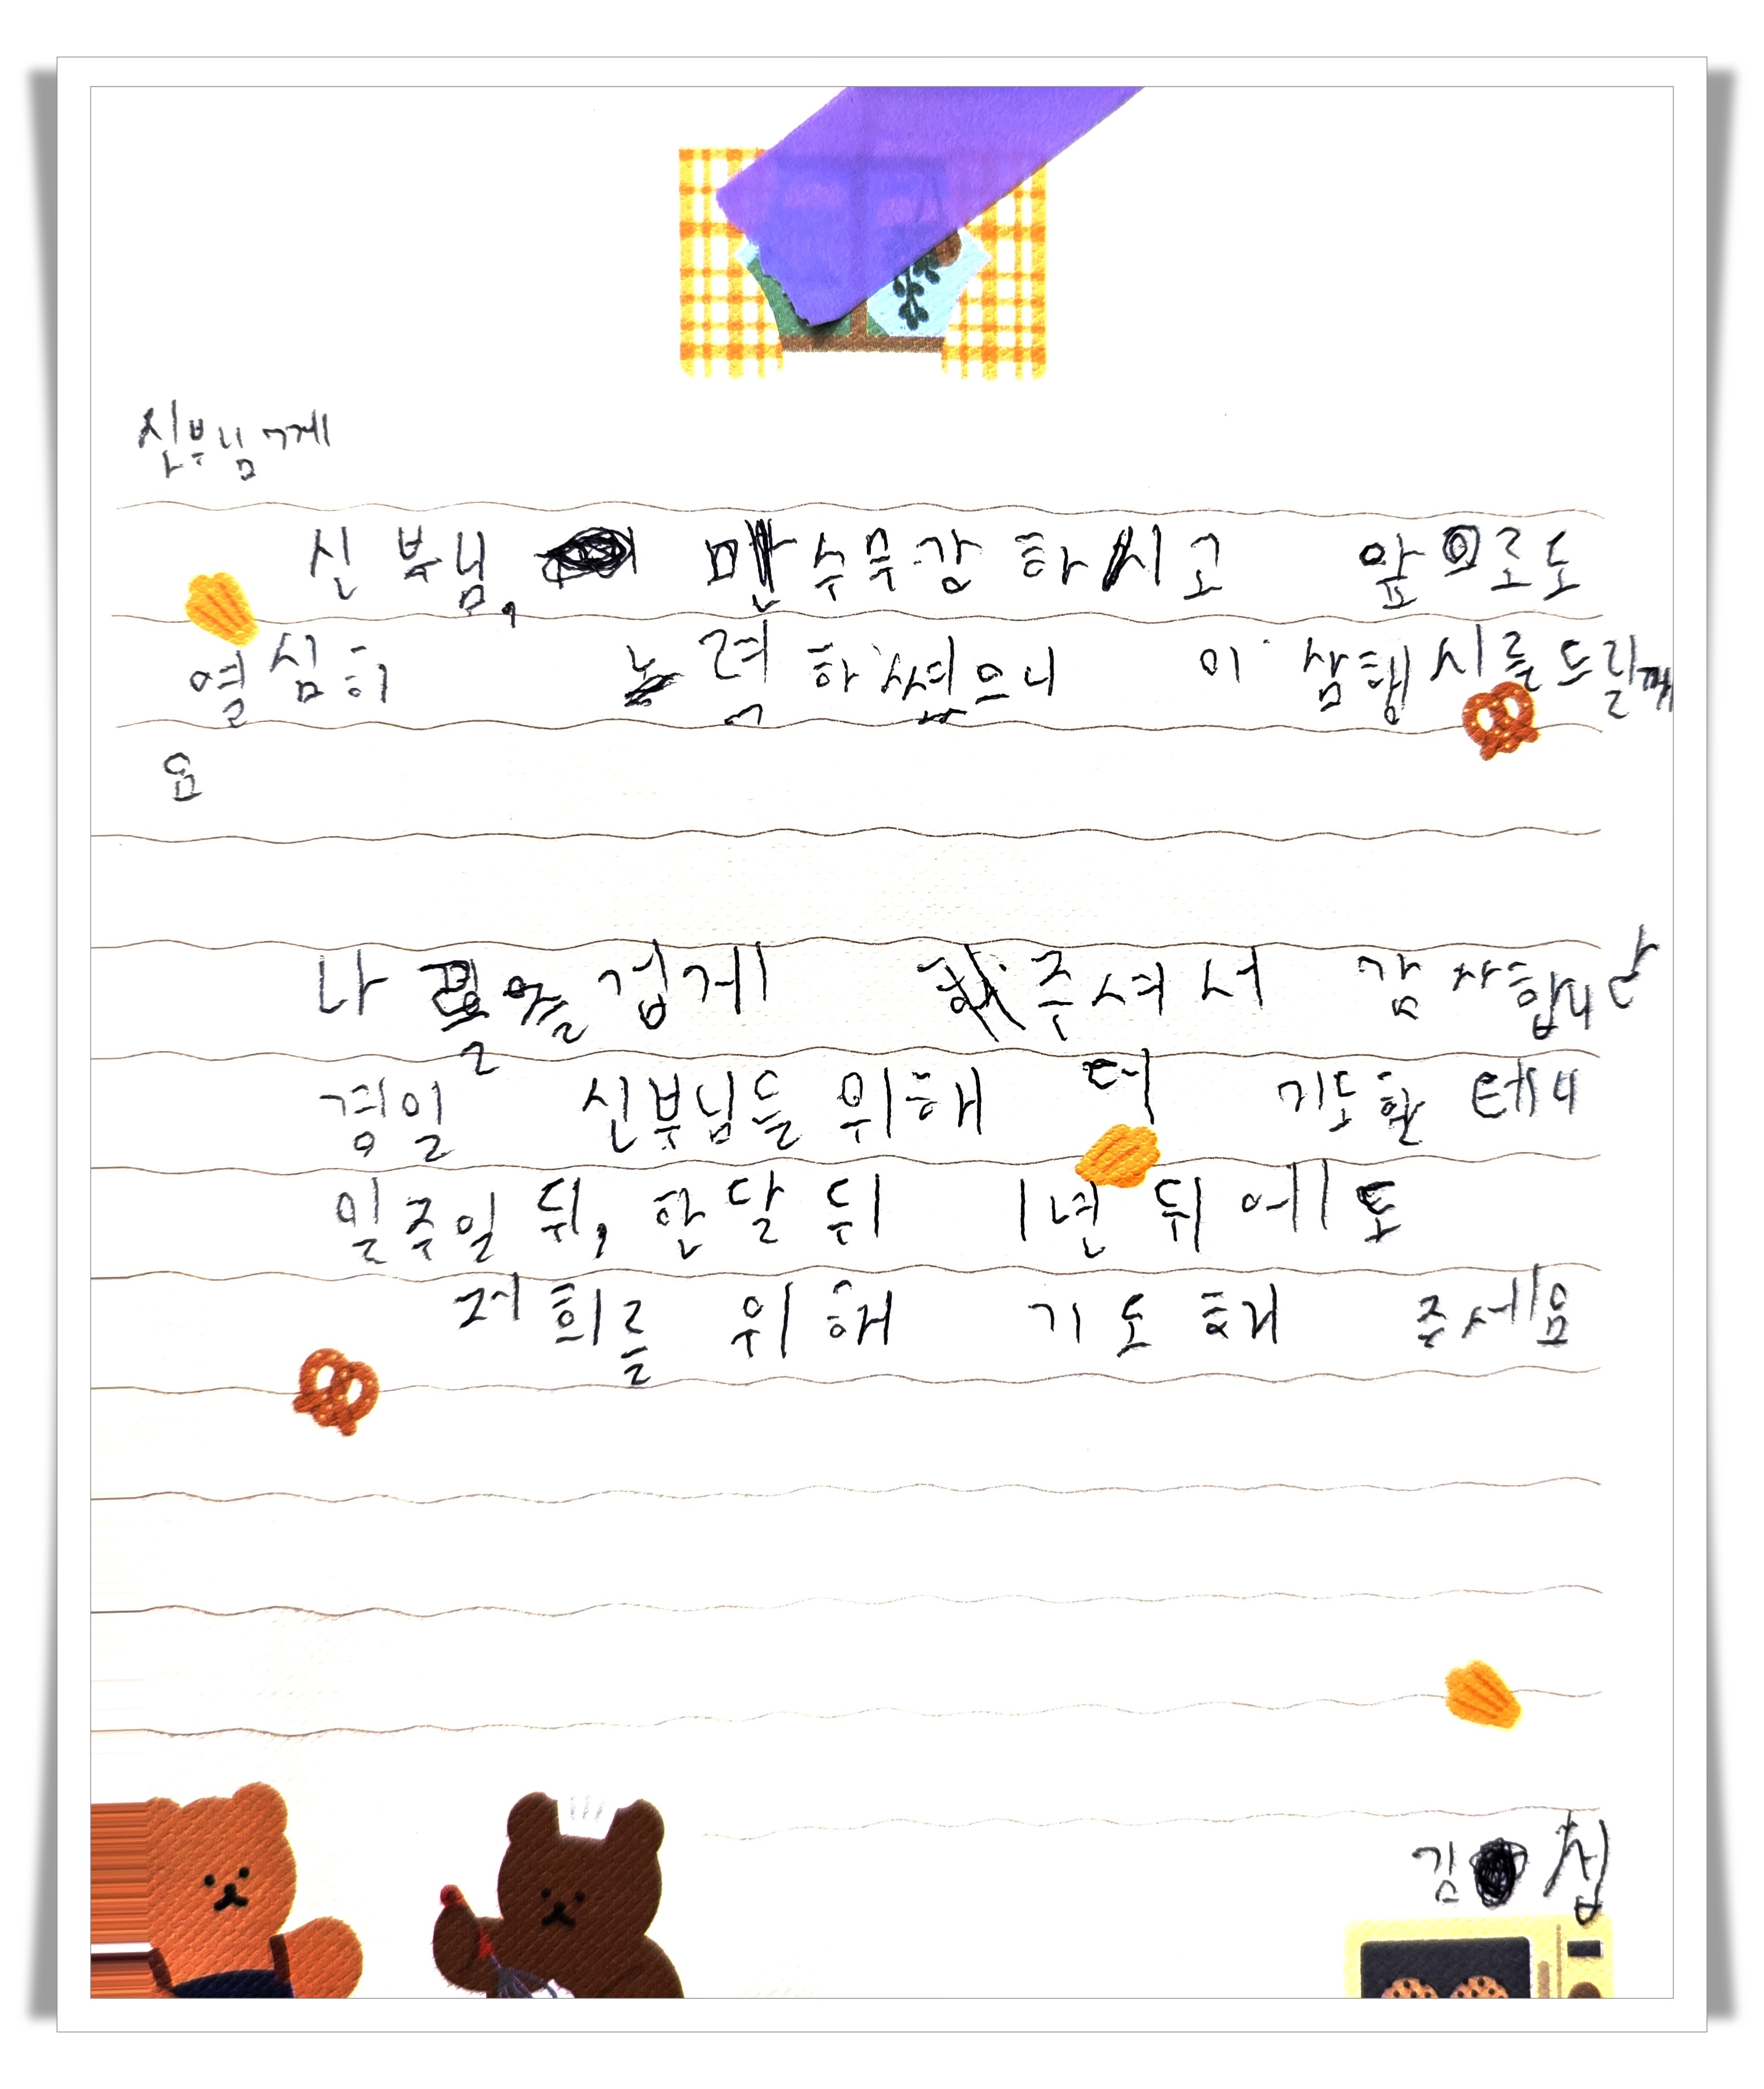 신부님께
신부님, 만수무강 하시고 앞으로도
열심히 노력하셨으니 이 삼행시를드릴께
요
나 을 겁게 주셔서 감사합니다
경일 신부님들 위해 더 기도할 테니
일주일 뒤, 한달뒤 1년 뒤에도
저희를 위해 기도해 주세요
김